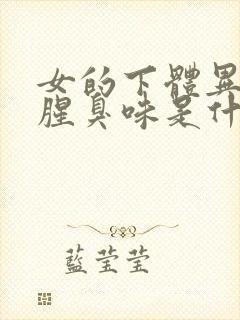 女的下體異
腥臭味是什
藍莹莹